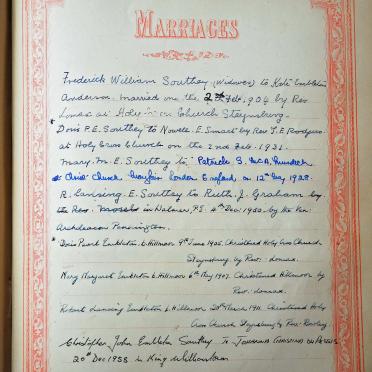 MARRIAGES
Frederick William Southey (widower) to Kate Embleton
Anderson. married on the 2nd Feb. 1904 by Rev
Lomax at Holy Church Steynsburg.
Doris P. E. Southey to Newell E. Smart by Rev. L. E. Rodgers
at Holy Cross Church on the 2nd Feb. 1931.
Mary. M. E. Southey to Patrick S.
Christ Church Mayfair London England on 12th May 1928.
R. Lansing. E. Southey to Ruth. J. Graham by
the Rev. in Walmer, P.E. 4th Dec. 1950 by the Ven.
Archdeacon
Doris Pearl Embleton b. Hillmoor 9th June 1905. Christened Holy Cross Church
Steynsburg by Rev: Lomax.
Mary Margaret Embleton b. Hillmoor 6th May 1907. Christened Hillmoor by
Rev: Lomax.
Robert Lansing Embleton b. Hillmoor 20th March 1911. Christened Holy
Cross Church Steynsburg by Rev:
Christopher John Embleton Southey to
20th Dec 1958 in King Williamstown